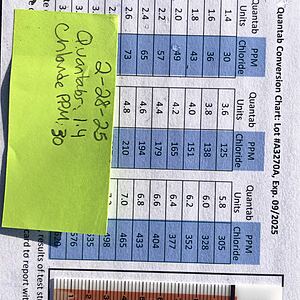 Quantab Conversion Chart: Lot #A3270A, Exp. 09/2025
Quantab Units PPM Chloride Quantab Units PPM Chloride Quantab Units PPM Chloride
1.4 30 3.6 125 5.8 305
1.6 36 3.8 138 6.0 328
1.8 43 4.0 151 6.2 352
2.0 49 4.2 165 6.4 377
2.2 57 4.4 179 6.6 404
2.4 65 4.6 194 6.8 433
2.6 73 4.8 210 7.0 465
2-28-25
Quantab: 1.4
Chloride PPM: 30
results of test stu
card to report with